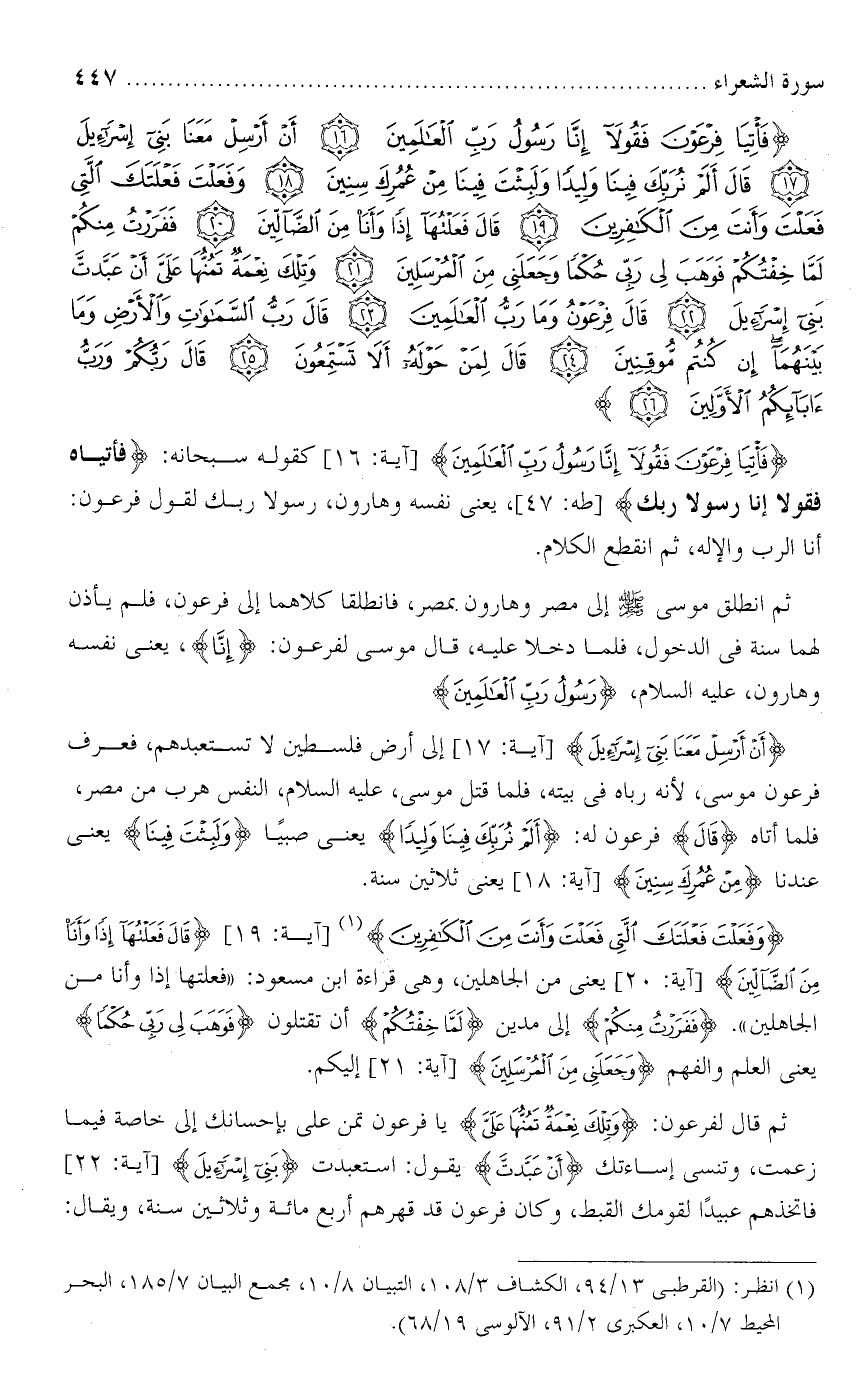 سورة الشعراء ........................................................................ ٤٤٧
﴿فَأْتِيَا فِرْعَوْنَ فَقُولَآ إِنَّا رَسُولُ رَبِّ ٱلْعَـٰلَمِينَ ١٦ أَنْ أَرْسِلْ مَعَنَا بَنِىٓ إِسْرَٰٓءِيلَ
١٧ قَالَ أَلَمْ نُرَبِّكَ فِينَا وَلِيدًا وَلَبِثْتَ فِينَا مِنْ عُمُرِكَ سِنِينَ ١٨ وَفَعَلْتَ فَعْلَتَكَ ٱلَّتِى
فَعَلْتَ وَأَنتَ مِنَ ٱلْكَـٰفِرِينَ ١٩ قَالَ فَعَلْتُهَآ إِذًا وَأَنَا۠ مِنَ ٱلضَّآلِّينَ ٢٠ فَفَرَرْتُ مِنكُمْ
لَمَّا خِفْتُكُمْ فَوَهَبَ لِى رَبِّى حُكْمًا وَجَعَلَنِى مِنَ ٱلْمُرْسَلِينَ ٢١ وَتِلْكَ نِعْمَةٌ تَمُنُّهَا عَلَىَّ أَنْ عَبَّدتَّ
بَنِىٓ إِسْرَٰٓءِيلَ ٢٢ قَالَ فِرْعَوْنُ وَمَا رَبُّ ٱلْعَـٰلَمِينَ ٢٣ قَالَ رَبُّ ٱلسَّمَـٰوَٰتِ وَٱلْأَرْضِ وَمَا
بَيْنَهُمَآ إِن كُنتُم مُّوقِنِينَ ٢٤ قَالَ لِمَنْ حَوْلَهُۥٓ أَلَا تَسْتَمِعُونَ ٢٥ قَالَ رَبُّكُمْ وَرَبُّ
ءَابَآئِكُمُ ٱلْأَوَّلِينَ ٢٦ ﴾
﴿فَأْتِيَا فِرْعَوْنَ فَقُولَآ إِنَّا رَسُولُ رَبِّ ٱلْعَـٰلَمِينَ﴾ [آية: ١٦] كقوله سبحانه: ﴿فأتياه
فقولا إنا رسولا ربك﴾ [طه: ٤٧]، يعنى نفسه وهارون، رسولا ربك لقول فرعون:
أنا الرب والإله، ثم انقطع الكلام.
ثم انطلق موسى ﷺ إلى مصر وهارون بمصر، فانطلقا كلاهما إلى فرعون، فلم يأذن
لهما سنة فى الدخول، فلما دخلا عليه، قال موسى لفرعون: ﴿إِنَّا﴾، يعنى نفسه
وهارون، عليه السلام، ﴿رَسُولُ رَبِّ ٱلْعَـٰلَمِينَ﴾
﴿أَنْ أَرْسِلْ مَعَنَا بَنِىٓ إِسْرَٰٓءِيلَ﴾ [آية: ١٧] إلى أرض فلسطين لا تستعبدهم، فعرف
فرعون موسى، لأنه رباه فى بيته، فلما قتل موسى، عليه السلام، النفس هرب من مصر،
فلما أتاه ﴿قَالَ﴾ فرعون له: ﴿أَلَمْ نُرَبِّكَ فِينَا وَلِيدًا﴾ يعنى صبيًا ﴿وَلَبِثْتَ فِينَا﴾ يعنى
عندنا ﴿مِنْ عُمُرِكَ سِنِينَ﴾ [آية: ١٨] يعنى ثلاثين سنة.
﴿وَفَعَلْتَ فَعْلَتَكَ ٱلَّتِى فَعَلْتَ وَأَنتَ مِنَ ٱلْكَـٰفِرِينَ﴾(١) [آية: ١٩] ﴿قَالَ فَعَلْتُهَآ إِذًا وَأَنَا۠
مِنَ ٱلضَّآلِّينَ﴾ [آية: ٢٠] يعنى من الجاهلين، وهى قراءة ابن مسعود: «فعلتها إذا وأنا من
الجاهلين». ﴿فَفَرَرْتُ مِنكُمْ﴾ إلى مدين ﴿لَمَّا خِفْتُكُمْ﴾ أن تقتلون ﴿فَوَهَبَ لِى رَبِّى حُكْمًا﴾
يعنى العلم والفهم ﴿وَجَعَلَنِى مِنَ ٱلْمُرْسَلِينَ﴾ [آية: ٢١] إليكم.
ثم قال لفرعون: ﴿وَتِلْكَ نِعْمَةٌ تَمُنُّهَا عَلَىَّ﴾ يا فرعون تمن على بإحسانك إلى خاصة فيما
زعمت، وتنسى إساءتك ﴿أَنْ عَبَّدتَّ﴾ يقول: استعبدت ﴿بَنِىٓ إِسْرَٰٓءِيلَ﴾ [آية: ٢٢]
فاتخذهم عبيدًا لقومك القبط، وكان فرعون قد قهرهم أربع مائة وثلاثين سنة، ويقال:
(١) انظر: (القرطبى ٩٤/١٣، الكشاف ١٠٨/٣، التبيان ١٠/٨، مجمع البيان ١٨٥/٧، البحر
المحيط ١٠/٧، العكبرى ٩١/٢، الآلوسى ٦٨/١٩).